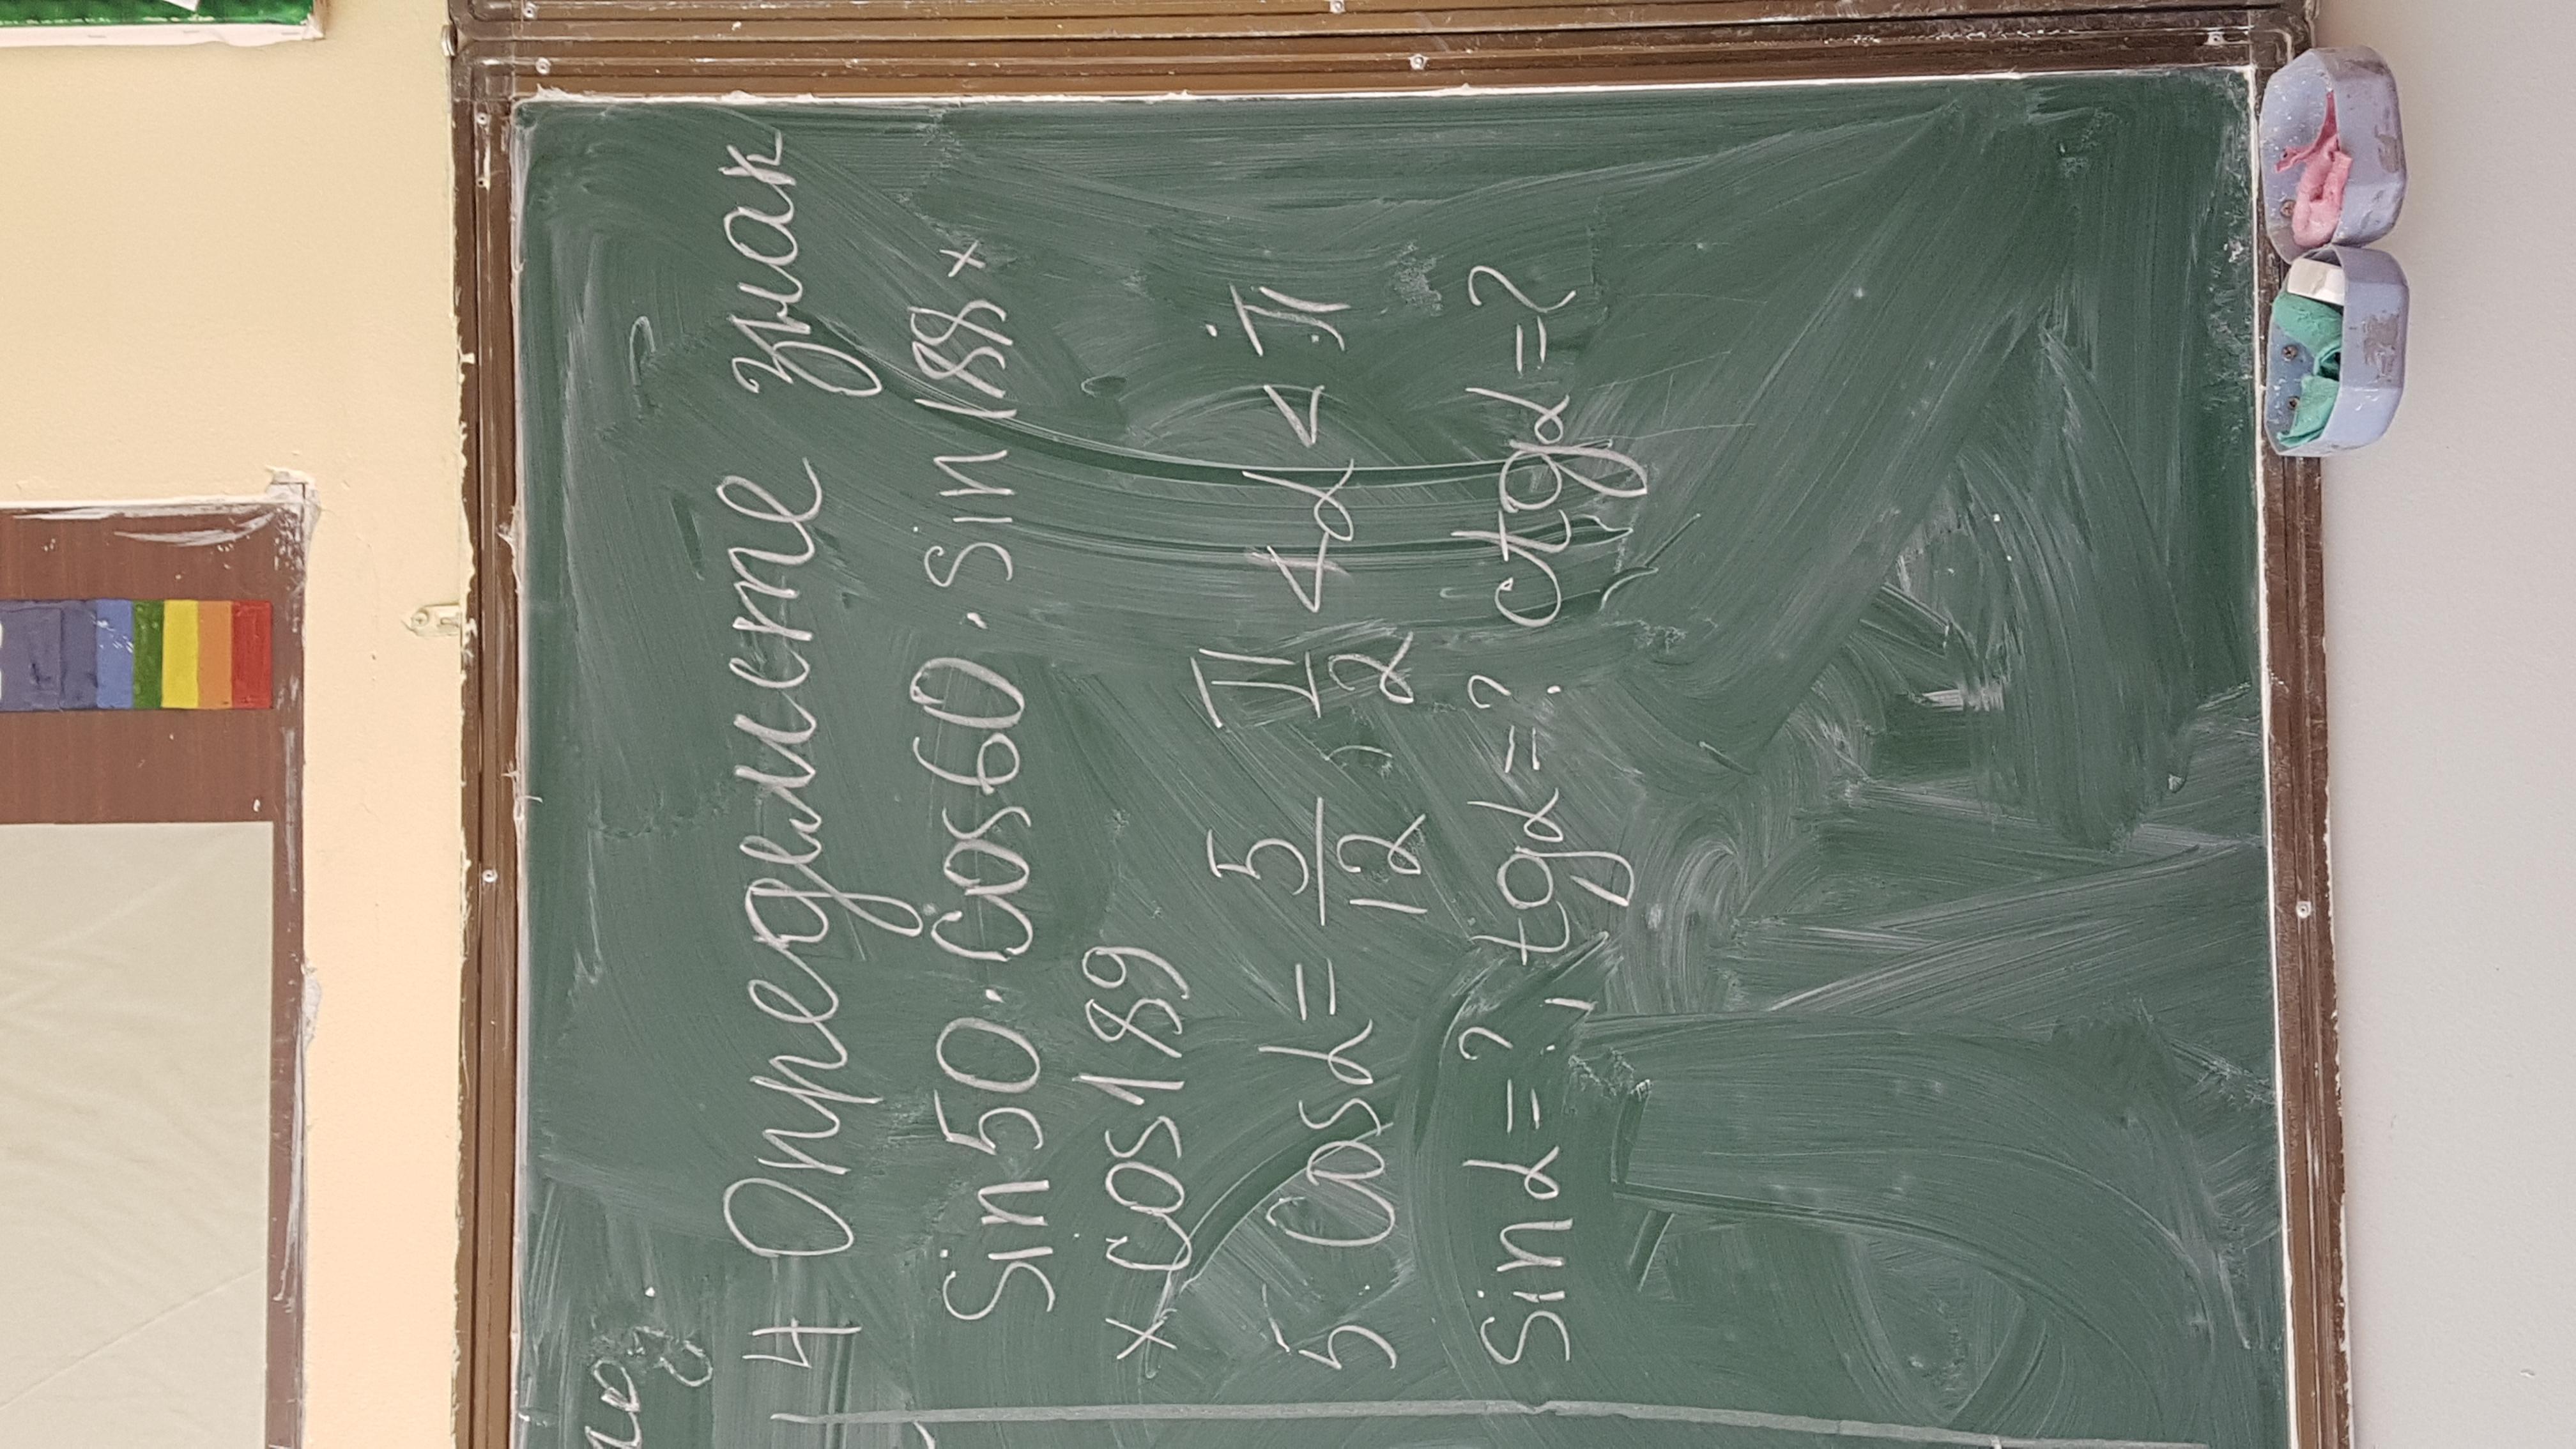 4 Определите знак
Sin 50 · Cos 60 · Sin 188 ×
× Cos 189
5 Cos α = 5/12, π/2 < α < π
Sin α = ?, tg α = ? ctg α = ?